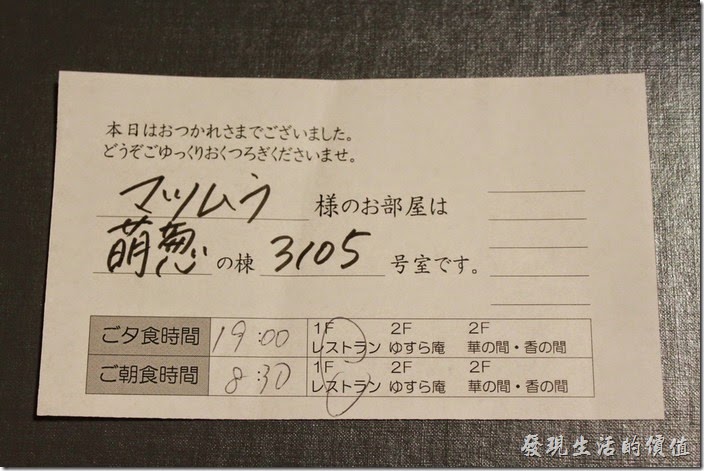 本日はおつかれさまでございました。
どうぞごゆっくりおくつろぎくださいませ。
マツムラ 様のお部屋は
萌葱 の棟 3105 号室です。
ご夕食時間 19:00 1F レストラン 2F ゆすら庵 2F 華の間・香の間
ご朝食時間 8:30 1F レストラン 2F ゆすら庵 2F 華の間・香の間
發現生活的價值